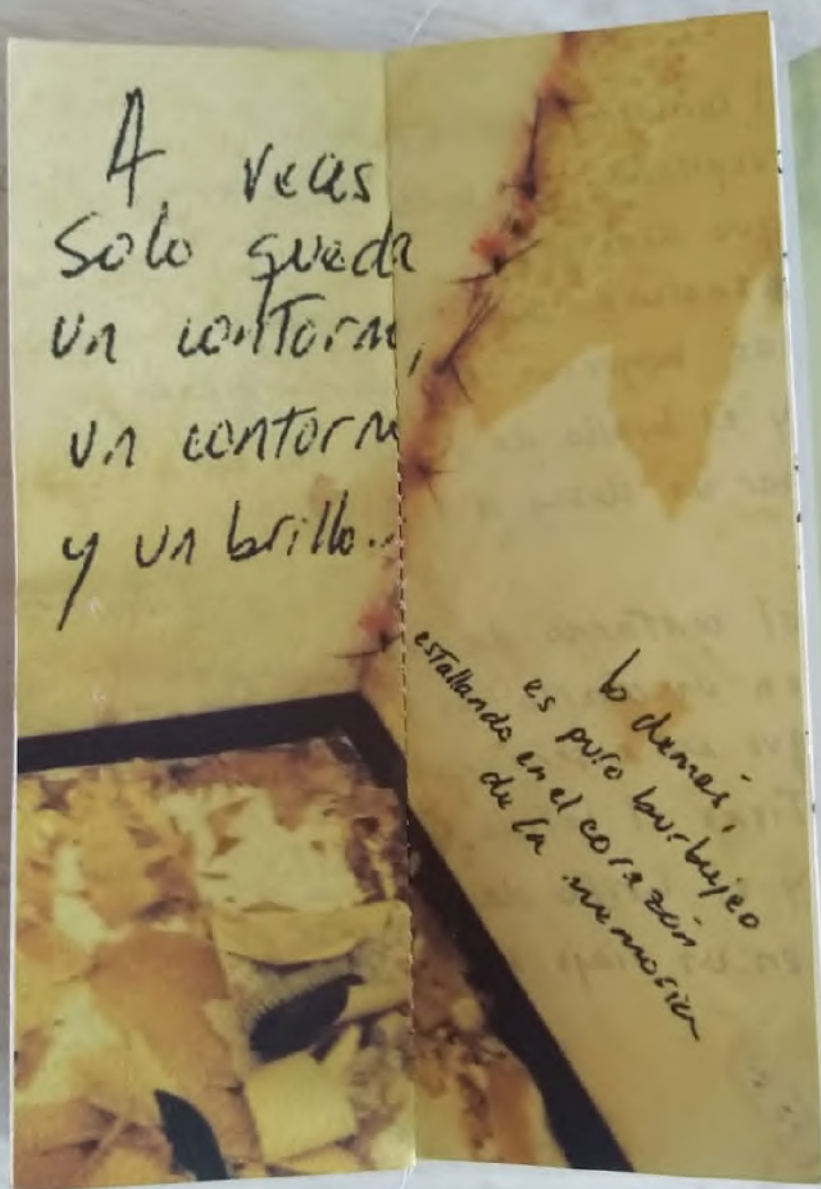 A veces
solo queda
un contorno,
un contorno
y un brillo...
lo demás,
es puro burbujeo
estallando en el corazón
de la memoria